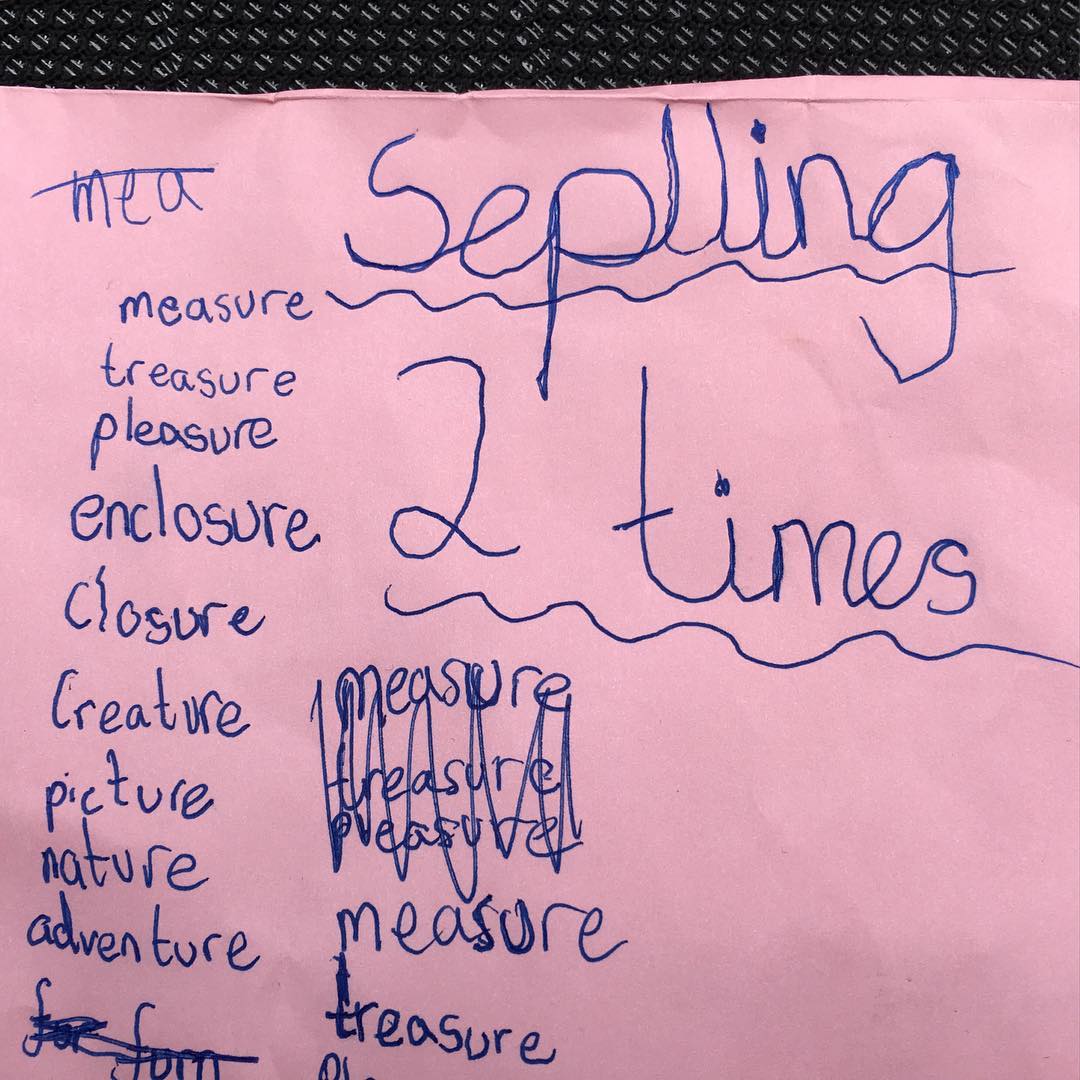 Seplling
mea
measure
treasure
pleasure
enclosure
closure
Creature
picture
nature
adventure
2 times
measure
treasure
pleasure
measure
treasure